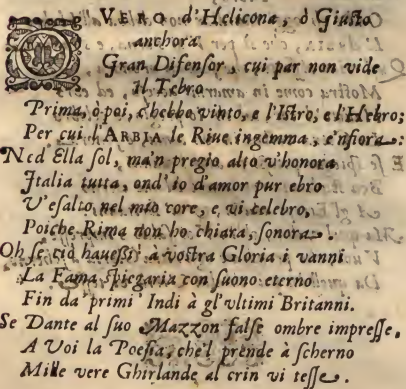 O VERO d'Helicona, ò Giusto
anchora
Gran Difensor, cui par non vide
il Tebro
Prima, ò poi, c'hebbe vinto, e l'Istro, e l'Hebro;
Per cui l'ARBIA le Riue ingemma, e'nfiora:
Ned Ella sol, ma'n pregio alto v'honora
Italia tutta, ond' io d'amor pur ebro
V'esalto nel mio core, e vi celebro,
Poiche Rima non ho chiara, sonora.
Oh se ciò hauessi! à vostra Gloria i vanni
La Fama spiegaria con suono eterno
Fin da' primi Indi à gl'vltimi Britanni.
Se Dante al suo Mazzon false ombre impresse,
A Voi la Poesia, che'l prende à scherno
Mille vere Ghirlande al crin vi tesse.